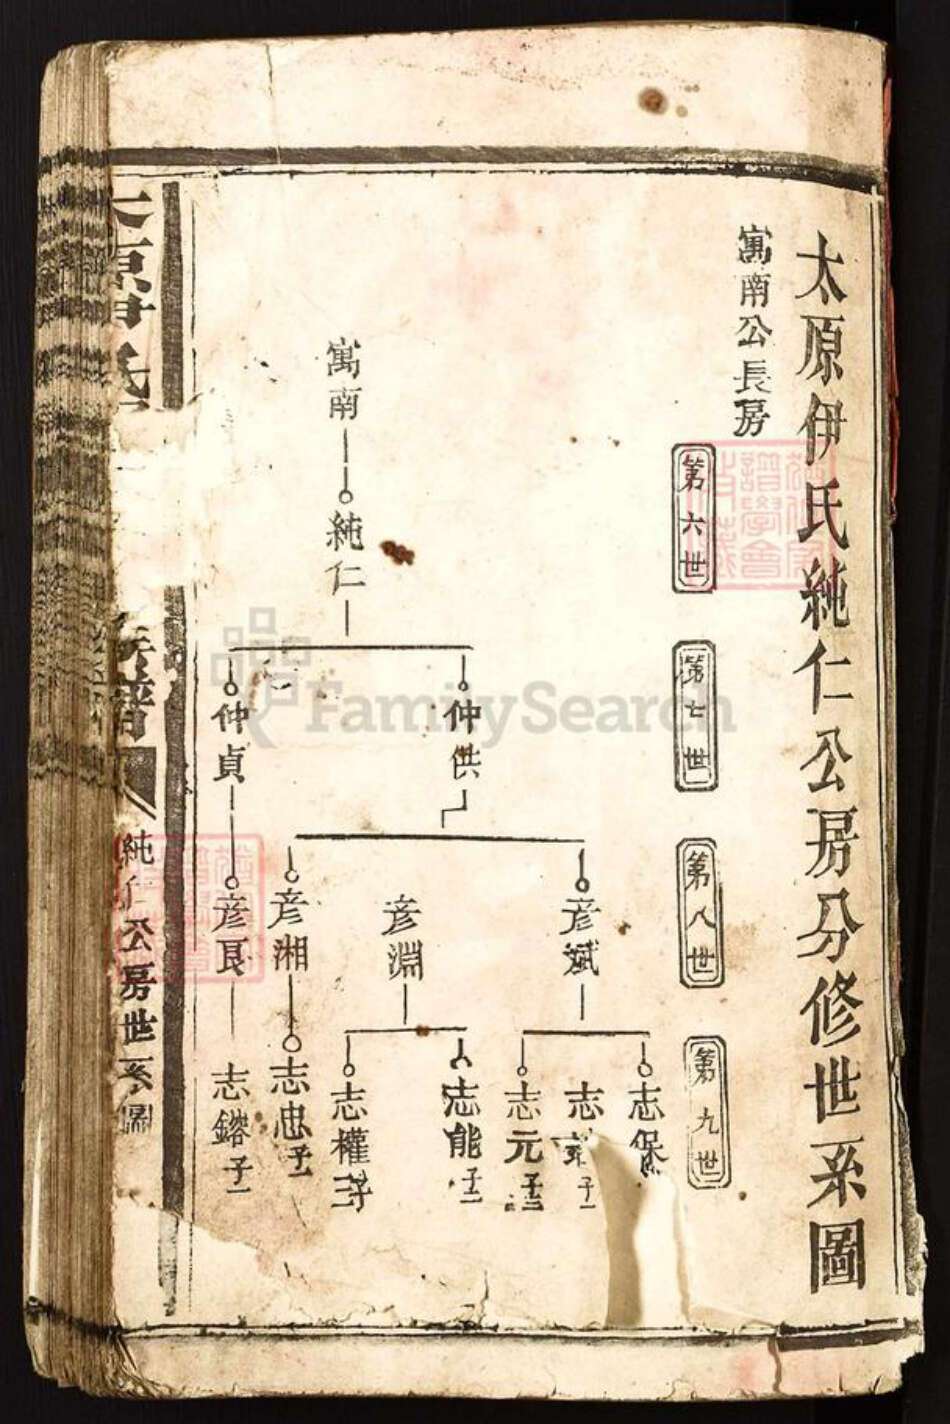 太原伊氏純仁公房分修世系圖
寓南公長房
第六世
第七世
第八世
第九世
寓南
純仁
仲供
仲貞
彦斌
彦淵
彦湘
彦艮
志保
志
子二
志元
子三
志能
子二
志權
子三
志忠
子一
志鎔
子一
族譜
純仁公房世系圖
FamilySearch